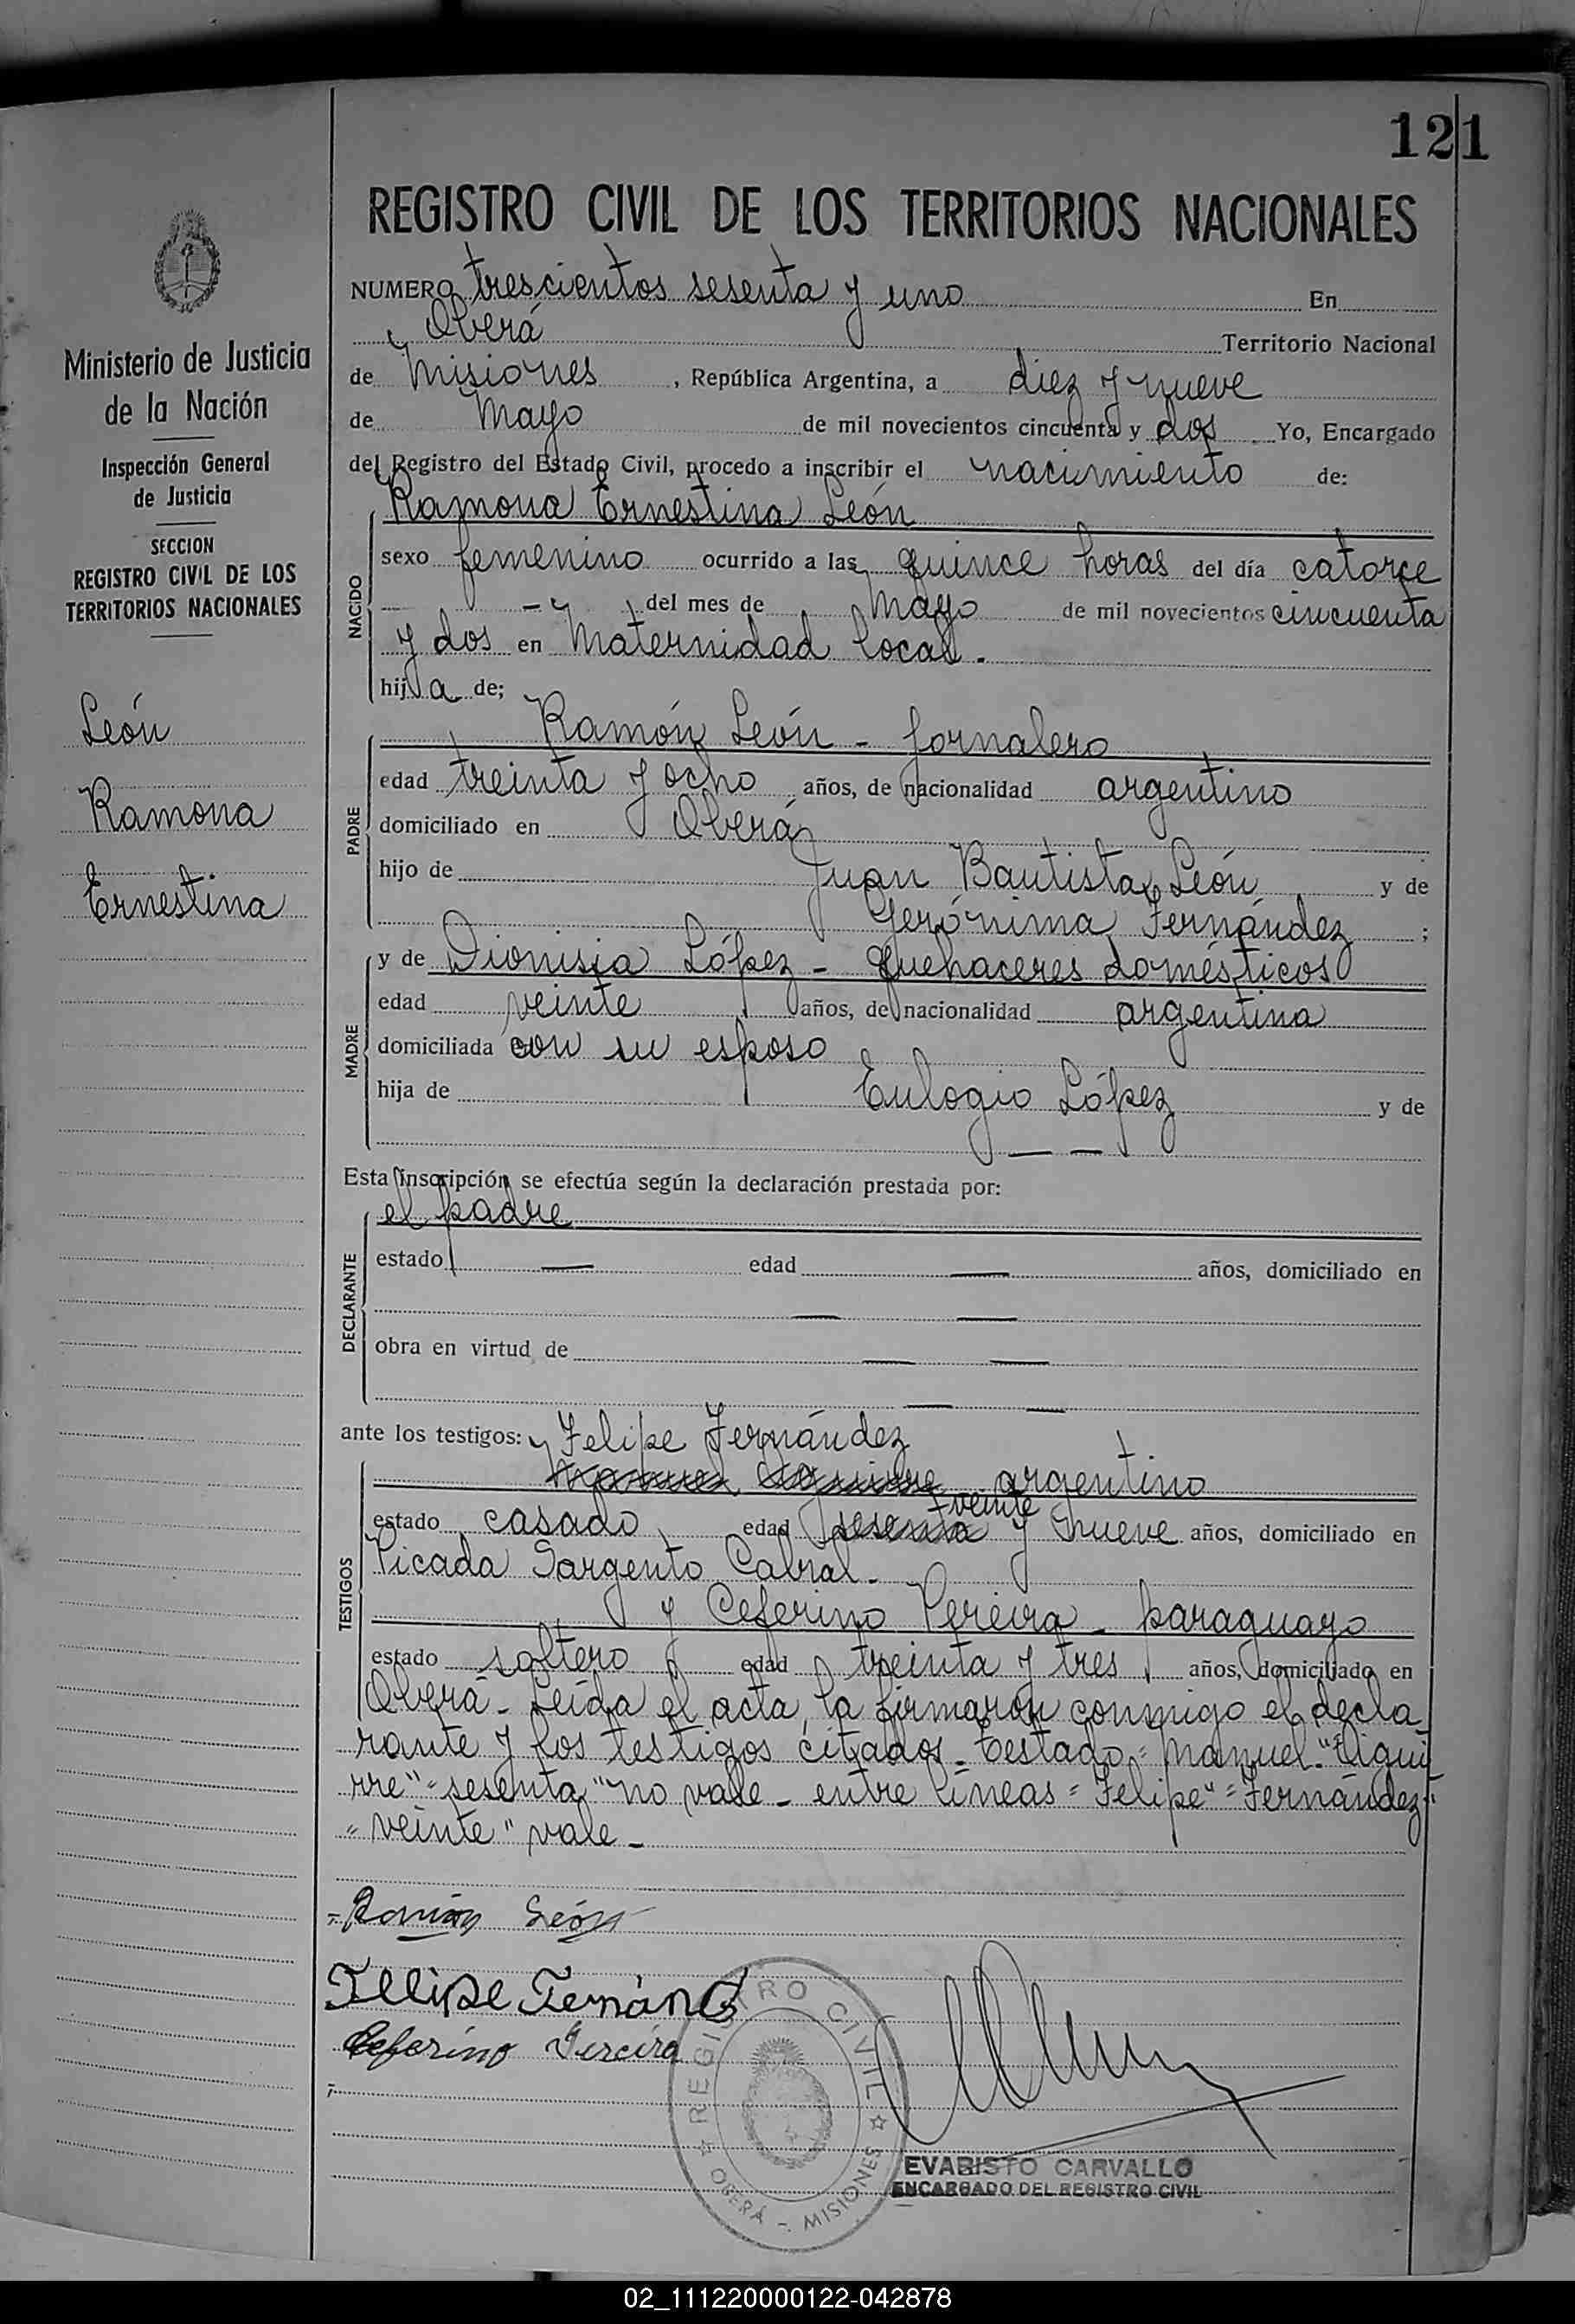 121
REGISTRO CIVIL DE LOS TERRITORIOS NACIONALES
Ministerio de Justicia
de la Nación
Inspección General
de Justicia
SECCION
REGISTRO CIVIL DE LOS
TERRITORIOS NACIONALES
León
Ramona
Ernestina
NUMERO trescientos sesenta y uno En
Oberá Territorio Nacional
de Misiones, República Argentina, a diez y nueve
de Mayo de mil novecientos cincuenta y dos. Yo, Encargado
del Registro del Estado Civil, procedo a inscribir el nacimiento de:
Ramona Ernestina León
NACIDO
sexo femenino ocurrido a las quince horas del día catorce
del mes de Mayo de mil novecientos cincuenta
y dos en Maternidad local.
hija de;
Ramón León - Jornalero
PADRE
edad treinta y ocho años, de nacionalidad argentino
domiciliado en Oberá
hijo de Juan Bautista León y de
Gerónima Fernández ;
MADRE
y de Dionisia López - quehaceres domésticos
edad veinte años, de nacionalidad argentina
domiciliada con su esposo
hija de Eulogio López y de
— —
Esta inscripción se efectúa según la declaración prestada por:
el padre
DECLARANTE
estado — edad — años, domiciliado en
— —
obra en virtud de — —
— —
ante los testigos: Felipe Fernández
TESTIGOS
Manuel Aguirre argentino
veinte
estado casado edad sesenta y nueve años, domiciliado en
Picada Sargento Cabral.
y Ceferino Pereira - paraguayo
estado soltero edad treinta y tres años, domiciliado en
Oberá - Leída el acta, la firmaron conmigo el decla-
rante y los testigos citados. Testado = Manuel "Aguir
rre" = sesenta "no vale - entre líneas = Felipe" = Fernández"
"veinte" vale -
Ramón León
Felipe Fernánd
Ceferino Pereira
REGISTRO CIVIL
OBERÁ - MISIONES
EVARISTO CARVALLO
ENCARGADO DEL REGISTRO CIVIL
02_111220000122-042878